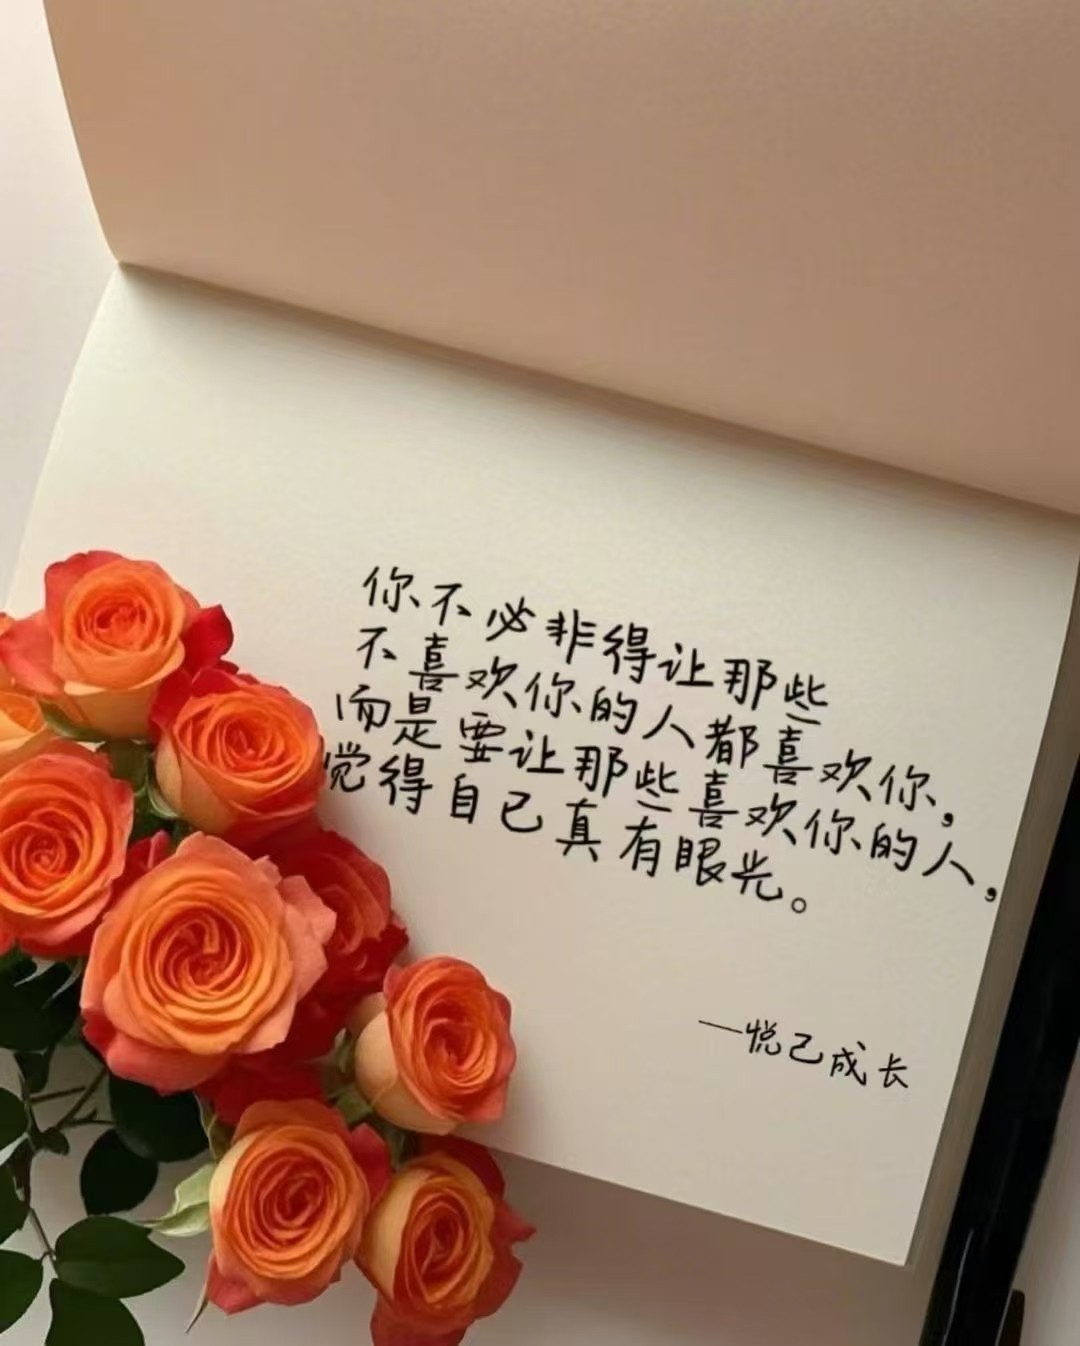 你不必非得让那些
不喜欢你的人都喜欢你，
而是要让那些喜欢你的人，
觉得自己真有眼光。
—悦己成长